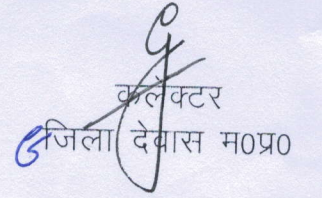 कलेक्टर
जिला देवास म०प्र०